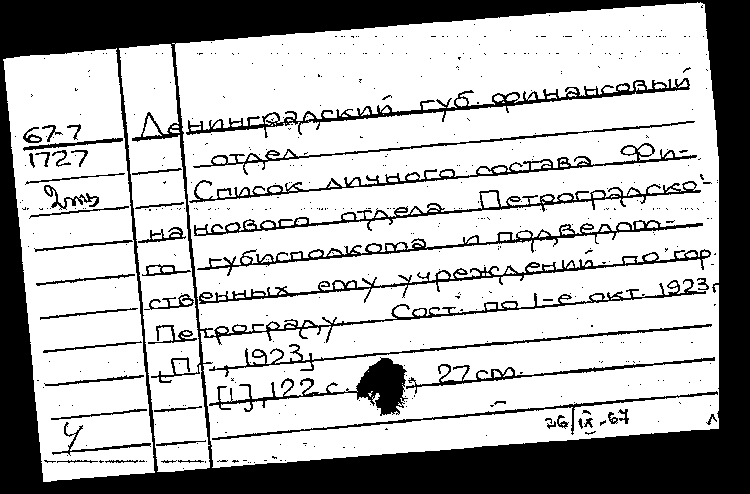 67-7
1727
2 отд
Ленинградский губ. финансовый
отдел.
Список личного состава Фи-
нансового отдела Петроградско-
го губисполкома и подведом-
ственных ему учреждений по гор.
Петрограду. Сост. по 1-е окт. 1923г.
[Пг., 1923]
[1], 122 с. 27 см.
26/IX-67